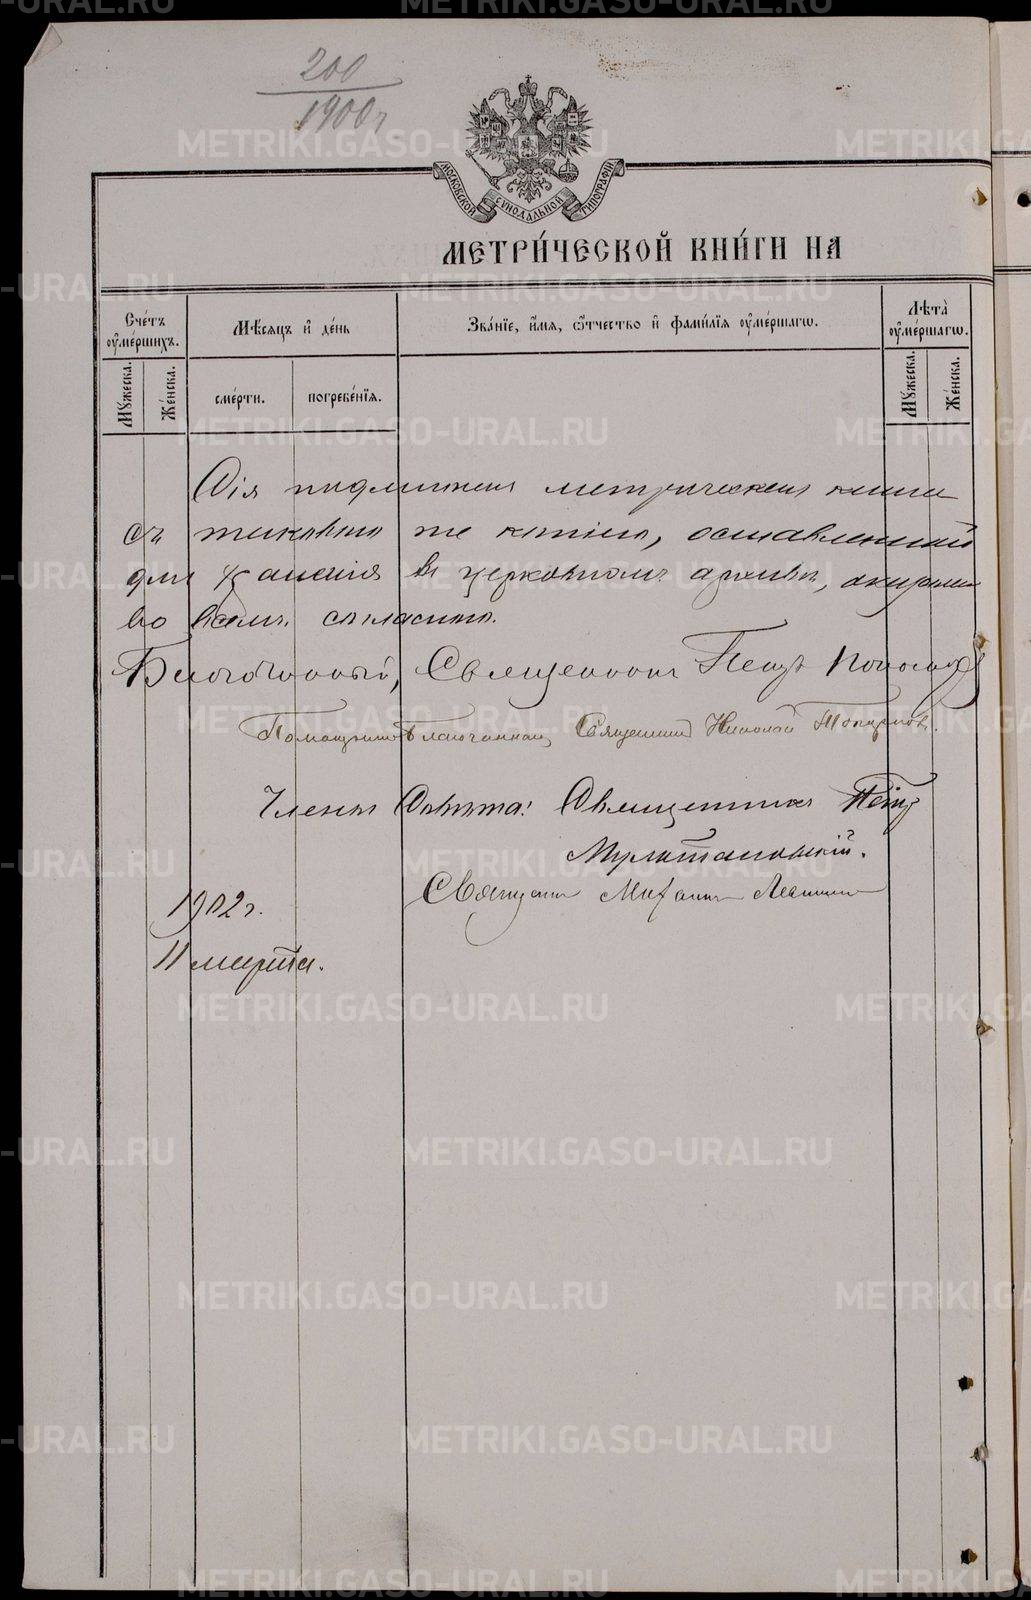 200
1900 г
МОСКОВСКОЙ СУНОДАЛЬНОЙ ТИПОГРАФІИ
МЕТРИ́ЧЕСКОЙ КНИ́ГИ НА
Сче́тъ ᲂу҆ме́ршихъ.
Мѣ́сяцъ и҆ де́нь
Зва́нїе, и҆́мя, ѻ҆́тчество и҆ фами́лїя ᲂу҆ме́ршагѡ.
Лѣта̀ ᲂу҆ме́ршагѡ.
Мꙋ́жеска.
Же́нска.
сме́рти.
погребе́нїя.
Мꙋ́жеска.
Же́нска.
Сія подлинная метрическая книга
съ таковою же копіею, оставленной
для храненія въ церковномъ архивѣ,
во всемъ согласна.
Благочинный, Священникъ Петръ
Помощникъ Благочиннаго Священникъ Николай Топорковъ.
Члены Совѣта: Священникъ Петръ
Мультановскій.
Священникъ Михаилъ
1902 г.
11 марта.